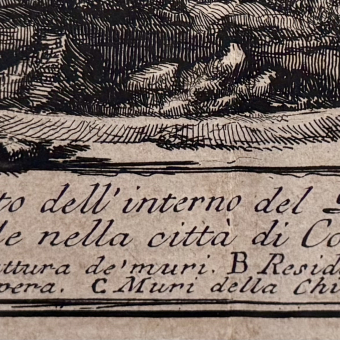 to dell'interno del
le nella città di Co
ttura de' muri. B Resid
pera. C. Muri della Chi